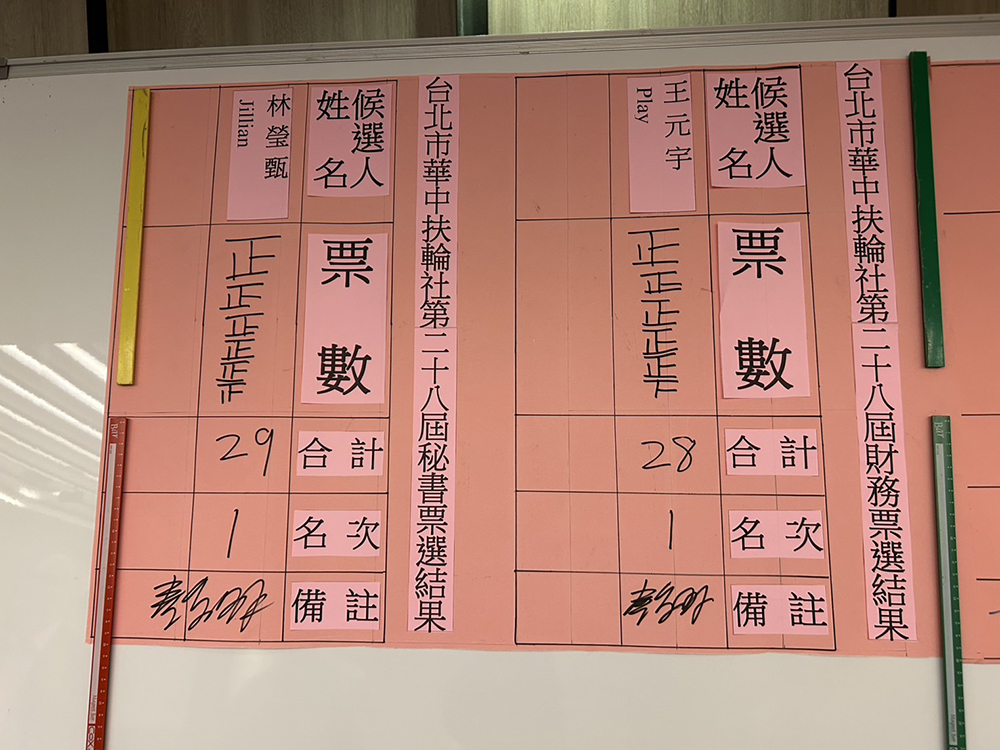 台北市華中扶輪社第二十八屆財務票選結果
候選人
姓名
王元宇
Play
票數
正正正正正下
合計
28
名次
1
備註
台北市華中扶輪社第二十八屆秘書票選結果
候選人
姓名
林瑩甄
Jillian
票數
正正正正正
合計
29
名次
1
備註